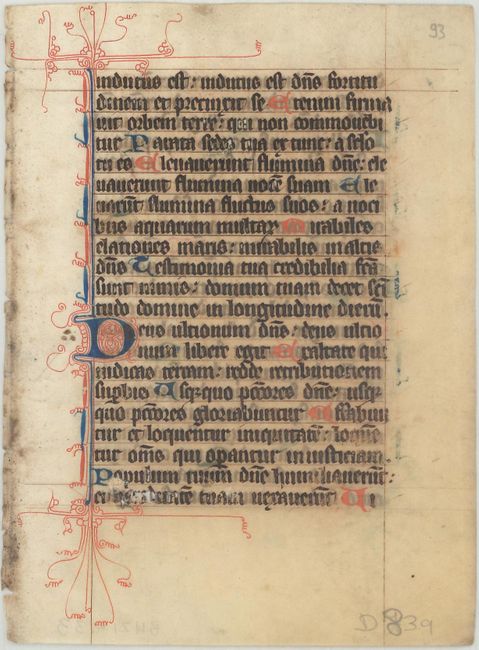 93
indutus est: indutus est dñs fortitu
dinem et precinxit se Etenim firma
uit orbem terre: qui non commouebi
tur Parata sedes tua ex tunc: a seclo
tu es Eleuauerunt flumina dñe: ele
uauerunt flumina uocem suam Ele
uauerunt flumina fluctus suos: a uoci
bus aquarum multarum Mirabiles
elationes maris: mirabilis in altis
dñs Testimonia tua credibilia fca
sunt nimis: domum tuam decet sctī
tudo domine in longitudinē dierū.
Deus ultionum dñs: deus ultio
num libere egit Exaltare qui
iudicas terram: redde retributionem
supbis Usqquo pctores dñe: usqz
quo pctores gloriabuntur Effabun
tur et loquentur iniquitatē: loquē
tur oms qui opantur iniusticiam
Populum tuum dñe humiliauerunt:
et hereditatē tuam uexauerunt Ui
D 839